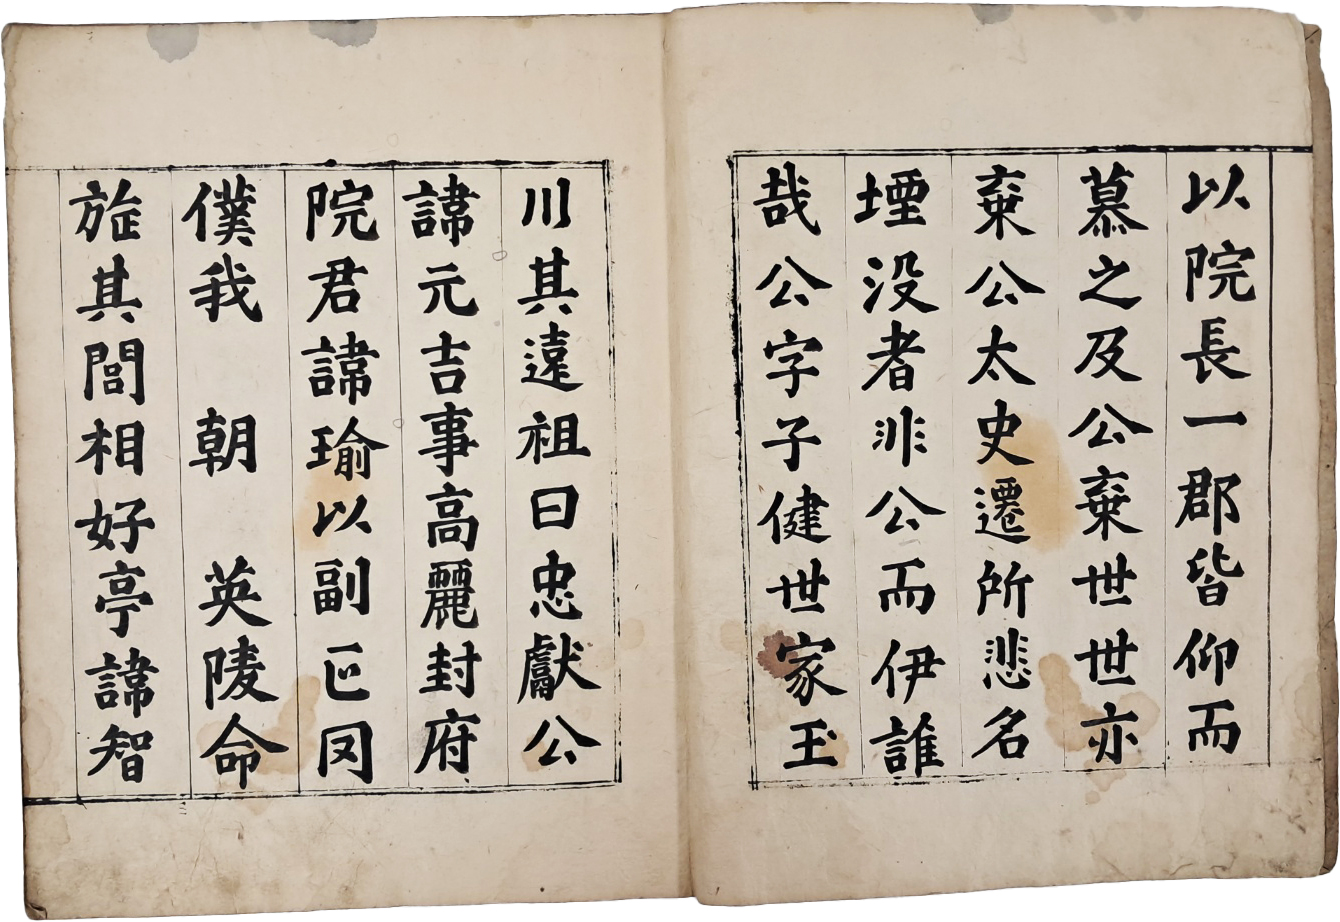 以院長一郡皆仰而
慕之及公棄世世亦
棄公太史遷所悲名
堙没者非公而伊誰
哉公字子健世家玉
川其遠祖曰忠獻公
諱元吉事高麗封府
院君諱瑜以副正罔
僕我　朝　英陵命
旌其閭相好亭諱智